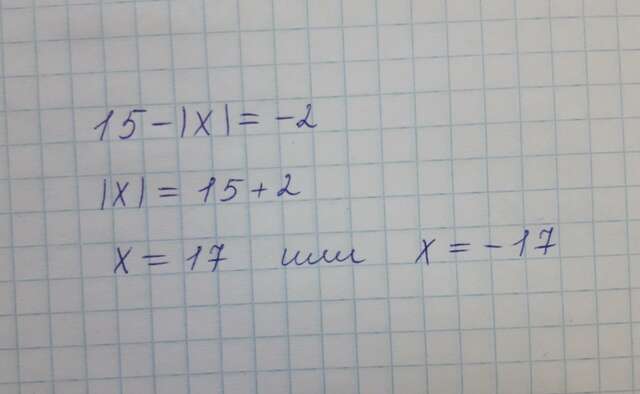 15 - |x| = -2
|x| = 15 + 2
x = 17 или x = -17